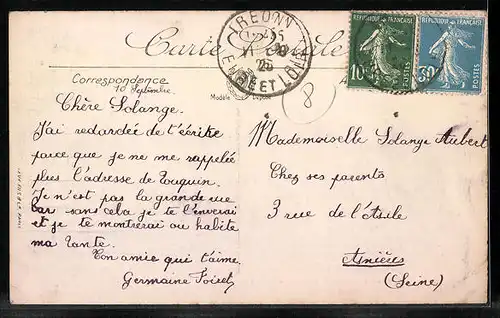 Carte Postale
TREON
EURE ET LOIR
REPUBLIQUE FRANÇAISE
10c
POSTES
REPUBLIQUE FRANÇAISE
30c
POSTES
Correspondance
10 Septembre
Modèle Déposé
8
Chère Solange.
J'ai redardée de t'écrire
parce que je ne me rappelée
plus l'adresse de Touquin.
Je n'est pas la grande rue
car sans cela je te l'enverai
et je te montrerai ou habite
ma Tante.
Ton amie qui t'aime.
Germaine
Mademoiselle Solange Aubert
Chez ses parents
3 rue de l'Asile
Asnières
(Seine)